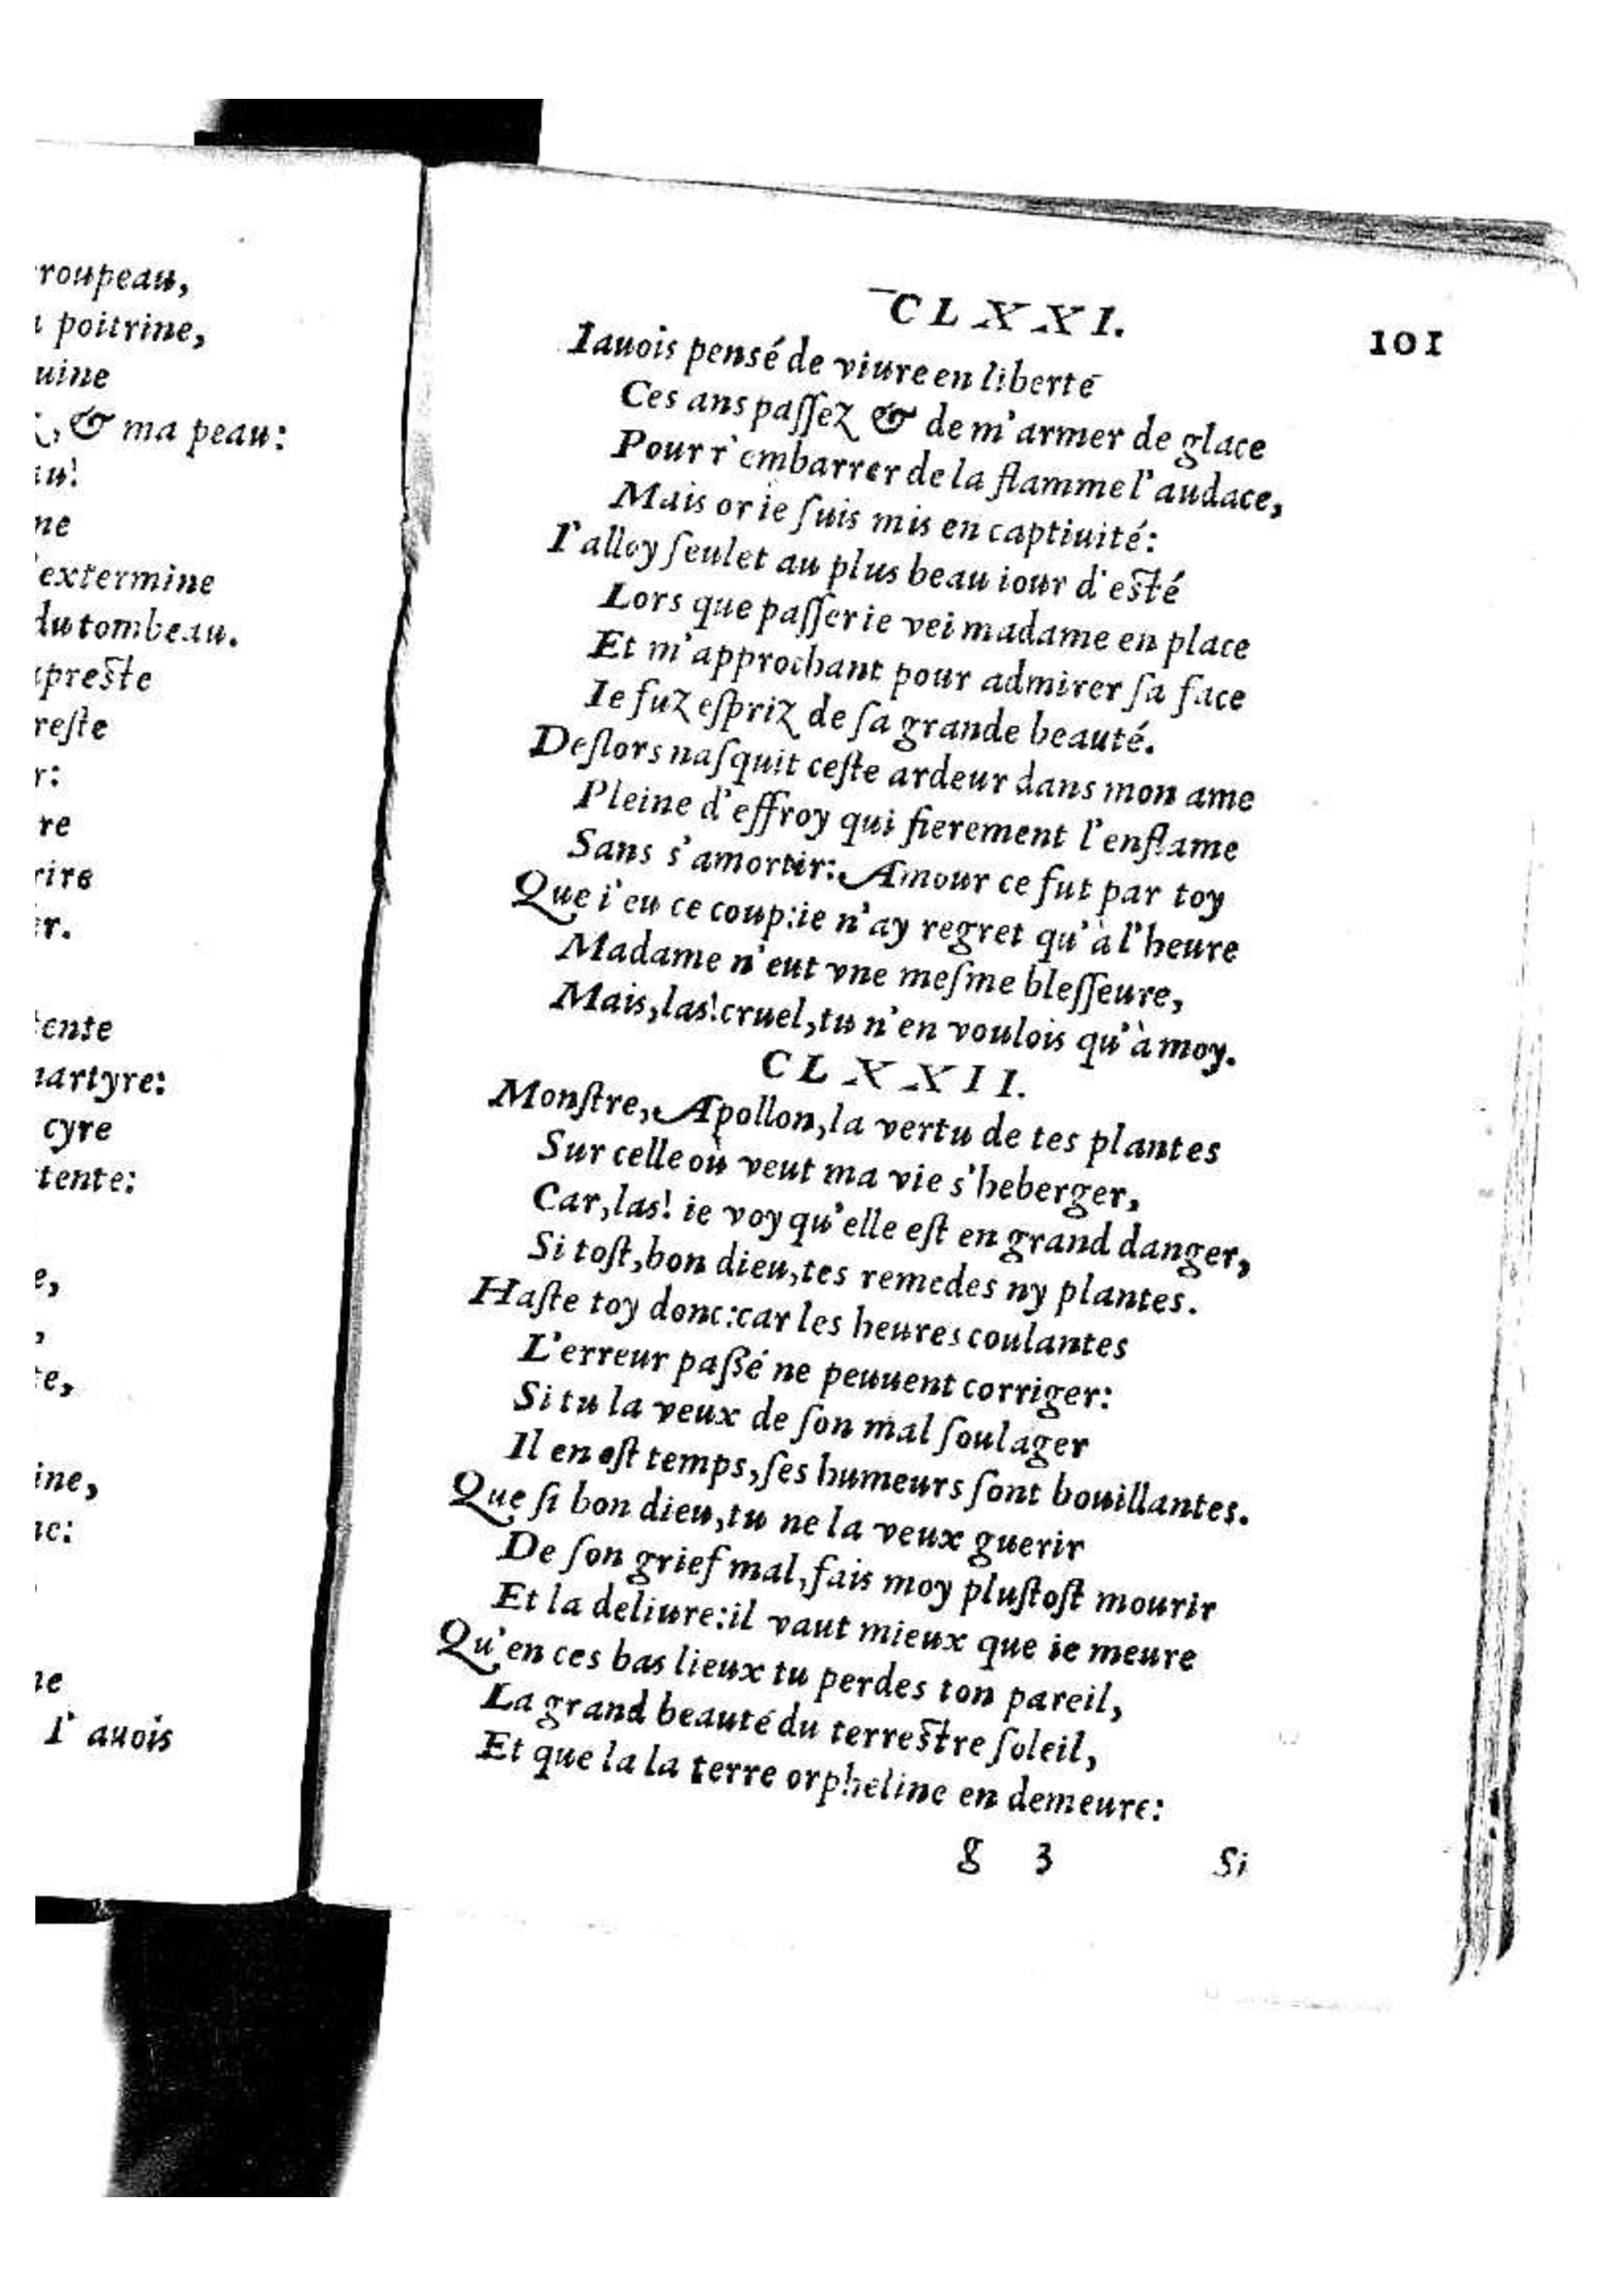 roupeau,
poitrine,
uine
, & ma peau:
au!
ne
extermine
du tombeau.
preste
reſte
r:
re
rire
r.
tente
martyre:
cyre
tente:
e,
te,
ine,
ne:
ne
I' auois
CLXXI.
101
Iauois pensé de viure en liberté
Ces ans paſſez & de m'armer de glace
Pour r'embarrer de la flamme l'audace,
Mais or ie ſuis mis en captiuité:
I'alloy ſeulet au plus beau iour d'esté
Lors que paſſer ie vei madame en place
Et m'approchant pour admirer ſa face
Ie fuz eſpriz de ſa grande beauté.
Deſlors naſquit ceſte ardeur dans mon ame
Pleine d'effroy qui fierement l'enflame
Sans s'amortir: Amour ce fut par toy
Que i'eu ce coup: ie n'ay regret qu'à l'heure
Madame n'eut vne meſme bleſſeure,
Mais, las! cruel, tu n'en voulois qu'à moy.
CLXXII.
Monſtre, Apollon, la vertu de tes plantes
Sur celle où veut ma vie s'heberger,
Car, las! ie voy qu'elle eſt en grand danger,
Si toſt, bon dieu, tes remedes ny plantes.
Haſte toy donc: car les heures coulantes
L'erreur paßé ne peuuent corriger:
Si tu la veux de ſon mal ſoulager
Il en eſt temps, ſes humeurs ſont bouillantes.
Que ſi bon dieu, tu ne la veux guerir
De ſon grief mal, fais moy pluſtoſt mourir
Et la deliure: il vaut mieux que ie meure
Qu'en ces bas lieux tu perdes ton pareil,
La grand beauté du terrestre ſoleil,
Et que la la terre orpheline en demeure:
g 3
Si